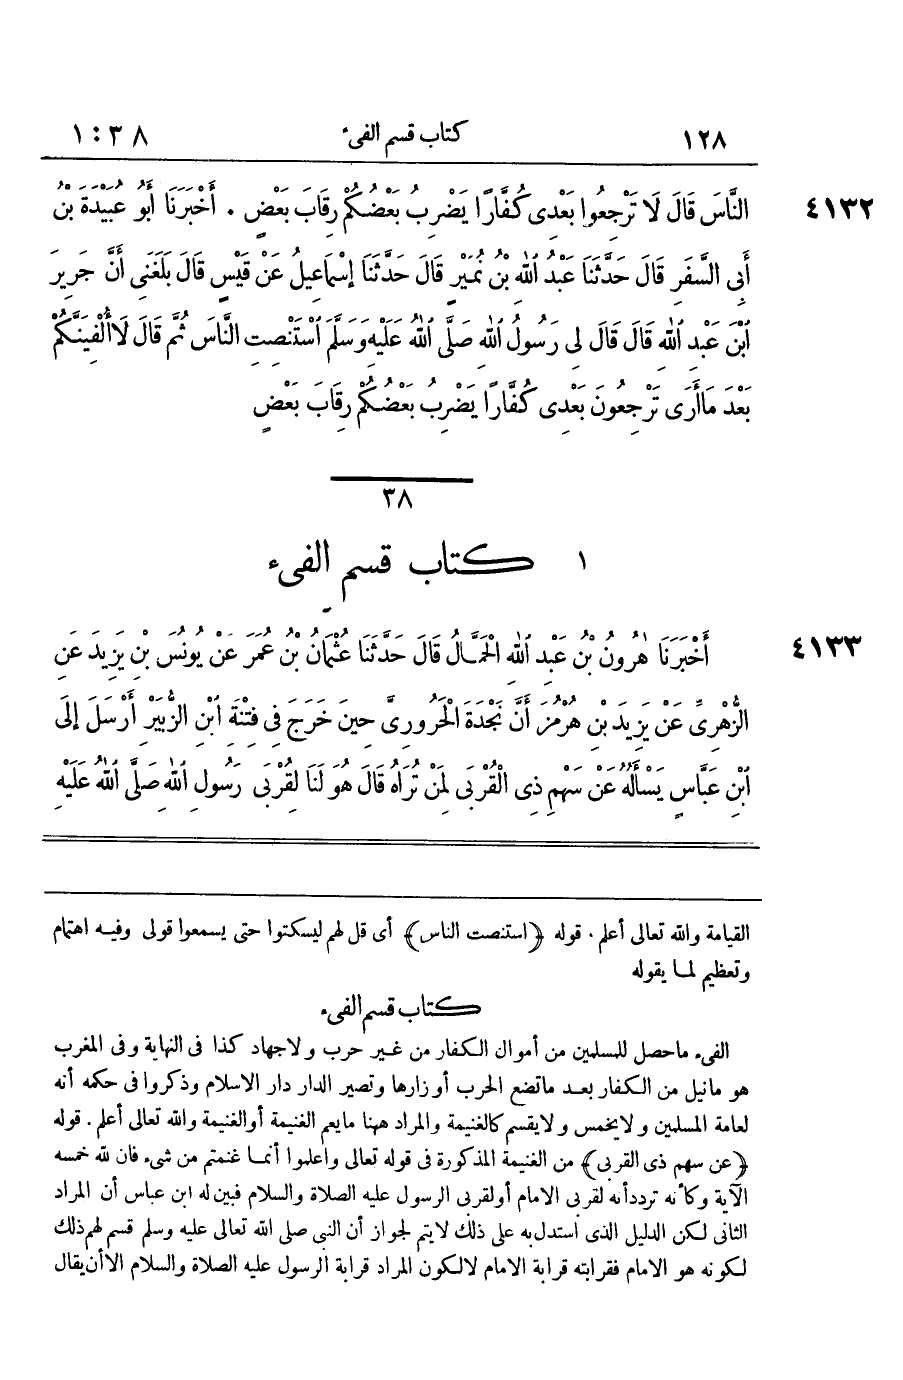 ١٢٨ كتاب قسم الفىء ٣٨ : ١
٤١٣٢ النَّاسَ قَالَ لَا تَرْجِعُوا بَعْدِى كُفَّارًا يَضْرِبُ بَعْضُكُمْ رِقَابَ بَعْضٍ . أَخْبَرَنَا أَبُو عُبَيْدَةَ بْنُ
أَبِى السَّفَرِ قَالَ حَدَّثَنَا عَبْدُ اللهِ بْنُ نُمَيْرٍ قَالَ حَدَّثَنَا إِسْمَاعِيلُ عَنْ قَيْسٍ قَالَ بَلَغَنِى أَنَّ جَرِيرَ
ابْنَ عَبْدِ اللهِ قَالَ قَالَ لِى رَسُولُ اللهِ صَلَّى اللهُ عَلَيْهِ وَسَلَّمَ اسْتَنْصِتِ النَّاسَ ثُمَّ قَالَ لَا أُلْفِيَنَّكُمْ
بَعْدَ مَا أَرَى تَرْجِعُونَ بَعْدِى كُفَّارًا يَضْرِبُ بَعْضُكُمْ رِقَابَ بَعْضٍ
٣٨
١ كتاب قسم الفىء
٤١٣٣ أَخْبَرَنَا هٰرُونُ بْنُ عَبْدِ اللهِ الْحَمَّالُ قَالَ حَدَّثَنَا عُثْمَانُ بْنُ عُمَرَ عَنْ يُونُسَ بْنِ يَزِيدَ عَنِ
الزُّهْرِىِّ عَنْ يَزِيدَ بْنِ هُرْمُزَ أَنَّ نَجْدَةَ الْحَرُورِىَّ حِينَ خَرَجَ فِى فِتْنَةِ ابْنِ الزُّبَيْرِ أَرْسَلَ إِلَى
ابْنِ عَبَّاسٍ يَسْأَلُهُ عَنْ سَهْمِ ذِى الْقُرْبَى لِمَنْ تُرَاهُ قَالَ هُوَ لَنَا لِقُرْبَى رَسُولِ اللهِ صَلَّى اللهُ عَلَيْهِ
القيامة والله تعالى أعلم . قوله ﴿استنصت الناس﴾ أى قل لهم ليسكتوا حتى يسمعوا قولى وفيه اهتمام
وتعظيم لما يقوله
كتاب قسم الفىء
الفىء ماحصل للمسلمين من أموال الكفار من غير حرب ولاجهاد كذا فى النهاية وفى المغرب
هو مانيل من الكفار بعد ماتضع الحرب أوزارها وتصير الدار دار الاسلام وذكروا فى حكمه أنه
لعامة المسلمين ولايخمس ولايقسم كالغنيمة والمراد ههنا مايعم الغنيمة أوالغنيمة والله تعالى أعلم . قوله
﴿عن سهم ذى القربى﴾ من الغنيمة المذكورة فى قوله تعالى واعلموا أنما غنمتم من شىء فان لله خمسه
الآية وكأنه تردد أنه لقربى الامام أولقربى الرسول عليه الصلاة والسلام فبين له ابن عباس أن المراد
الثانى لكن الدليل الذى استدل به على ذلك لايتم لجواز أن النبى صلى الله تعالى عليه وسلم قسم لهم ذلك
لكونه هو الامام فقرابته قرابة الامام لالكون المراد قرابة الرسول عليه الصلاة والسلام الاأن يقال